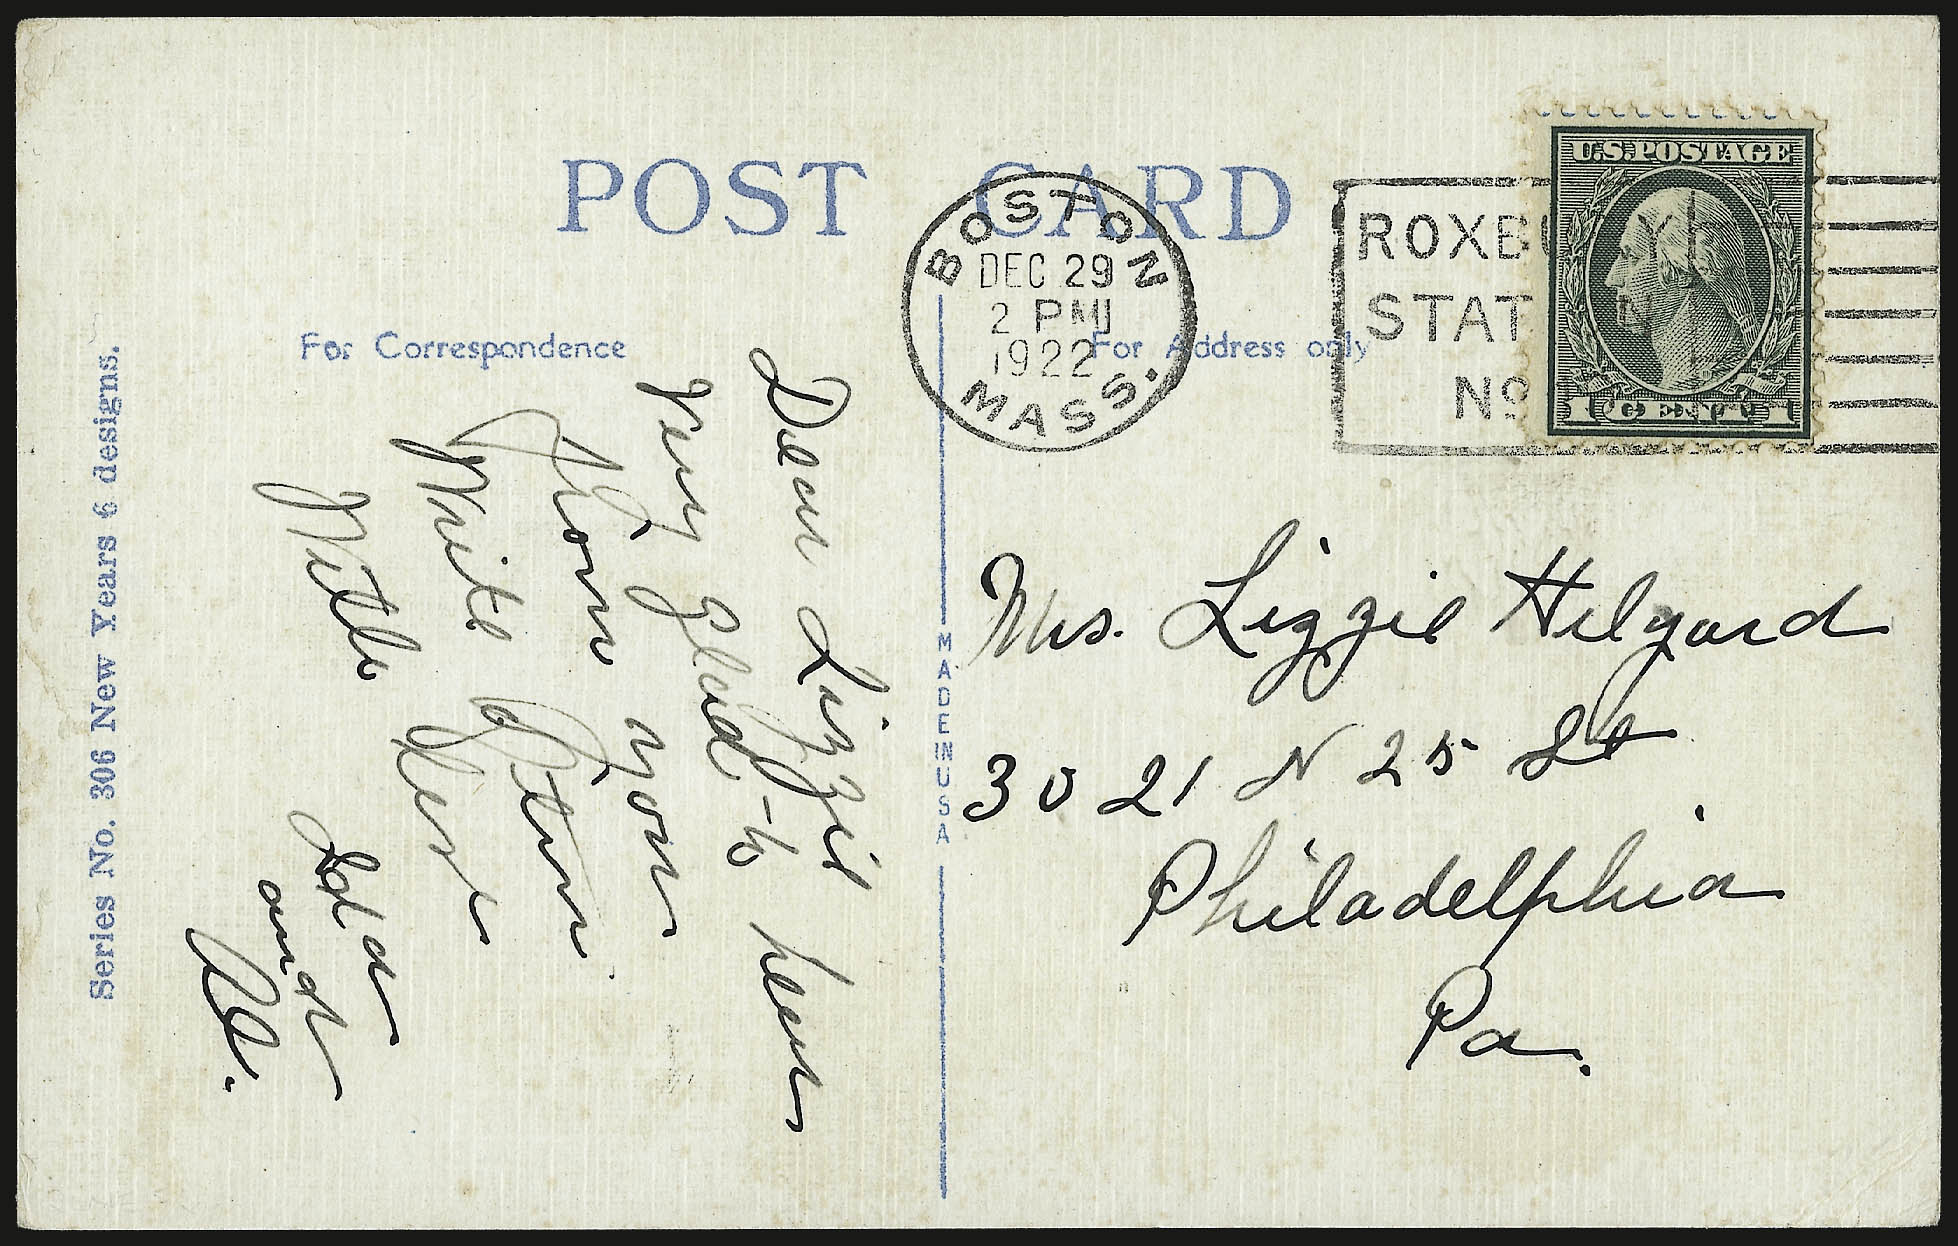 POST CARD
BOSTON
MASS.
DEC 29
2 PM
1922
ROXBURY
STAT
No
U.S. POSTAGE
1 CENT 1
For Correspondence
For Address only
Dear Lizzie
Very glad to hear
from you
Write again.
With love
Ida
and
Al.
Series No. 306 New Years 6 designs.
MADE IN USA
Mrs. Lizzie Hilyard
3021 N 25 St
Philadelphia
Pa.